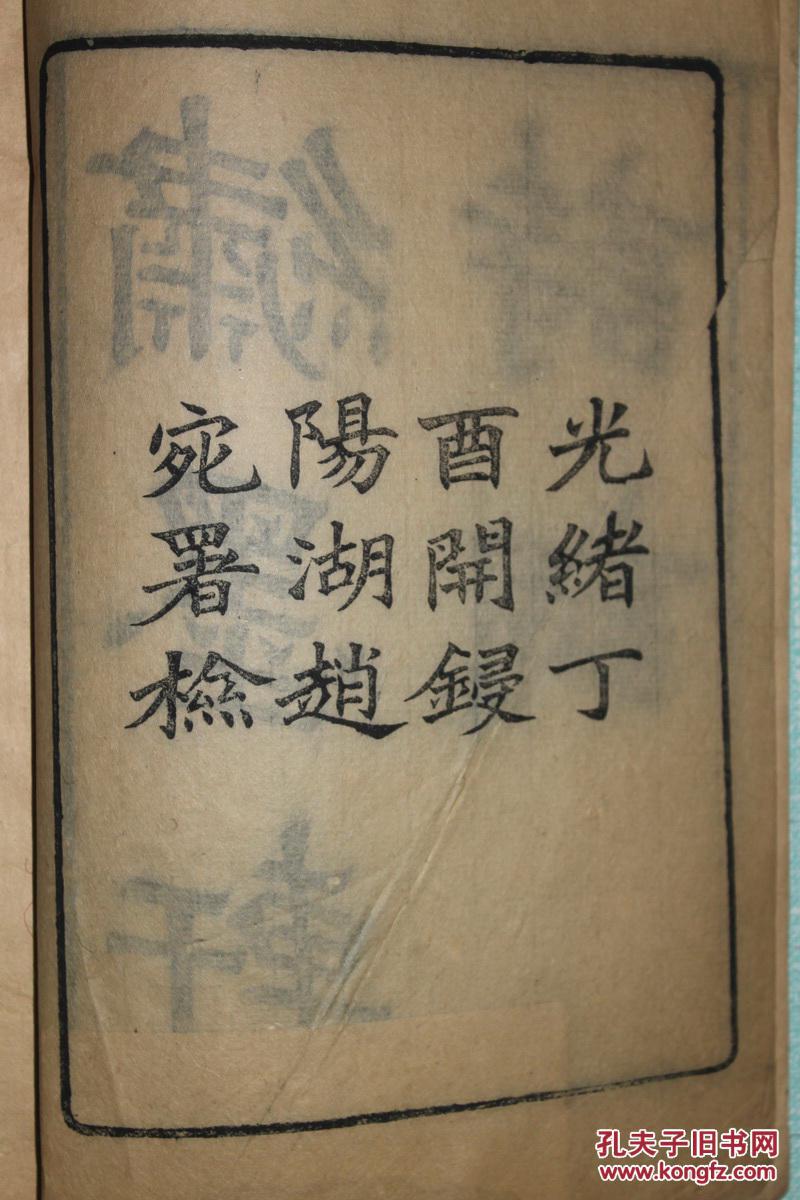 光緒丁
酉開鋟
陽湖趙
宛署檢
孔夫子旧书网
www.kongfz.com